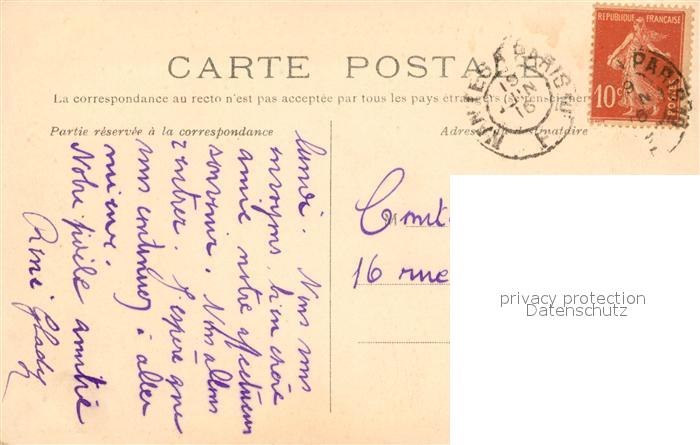 REPUBLIQUE FRANÇAISE
10c
NANTES A PARIS
CARTE POSTALE
La correspondance au recto n'est pas acceptée par tous les pays étrangers (se renseigner
Partie réservée à la correspondance
Adresse du destinataire
lundi. Nous vous
envoyons, bien chère
amie notre affectueux
souvenir. Nous allons
rentrer. J'espère que
vous continuez à aller
mieux.
Notre fidèle amitié
René Glady
16 rue
privacy protection
Datenschutz